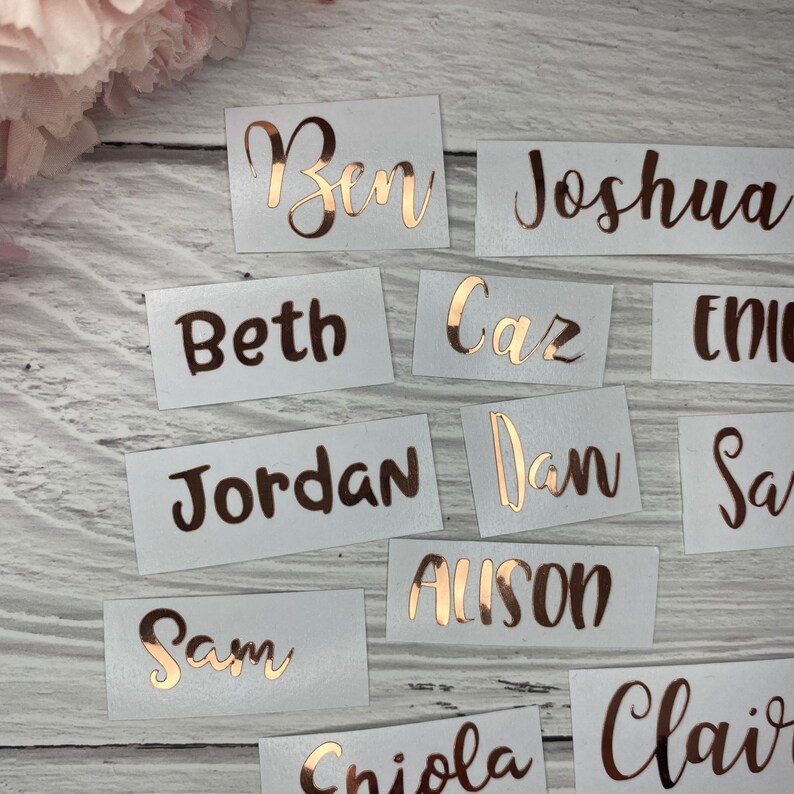 Ben
Joshua
Beth
Caz
ENI
Jordan
Dan
Sa
ALISON
Sam
Clair
Eniola